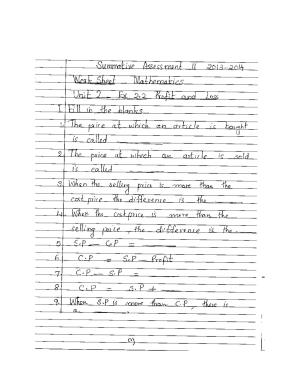 Summative Assessment II 2013-2014
Work Sheet Mathematics
Unit 2 - Ex 2.2 Profit and Loss
I Fill in the blanks.
1. The price at which an article is bought
is called
2. The price at which an article is sold
is called
3. When the selling price is more than the
cost price the difference is the
4. When the cost price is more than the
selling price, the difference is the
5. S.P - C.P =
6. C.P = S.P - Profit
7. C.P - S.P =
8. C.P = S.P +
9. When S.P is more than C.P, there is
a